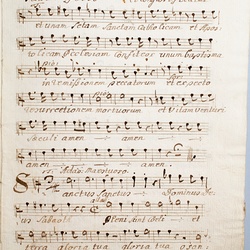 et unam Sctam Sanctam Catholicam et Apos
tolicam Ecclesiam Confiteor unum baptisma
in remissionem peccatorum et expecto
resurrectionem mortuorum et Vitam Venturi
Saeculi amen amen
amen
Sanctus Sanctus Dominus De
us Sabaoth Pleni sunt coeli et
terra gloria tua gloria tua osan